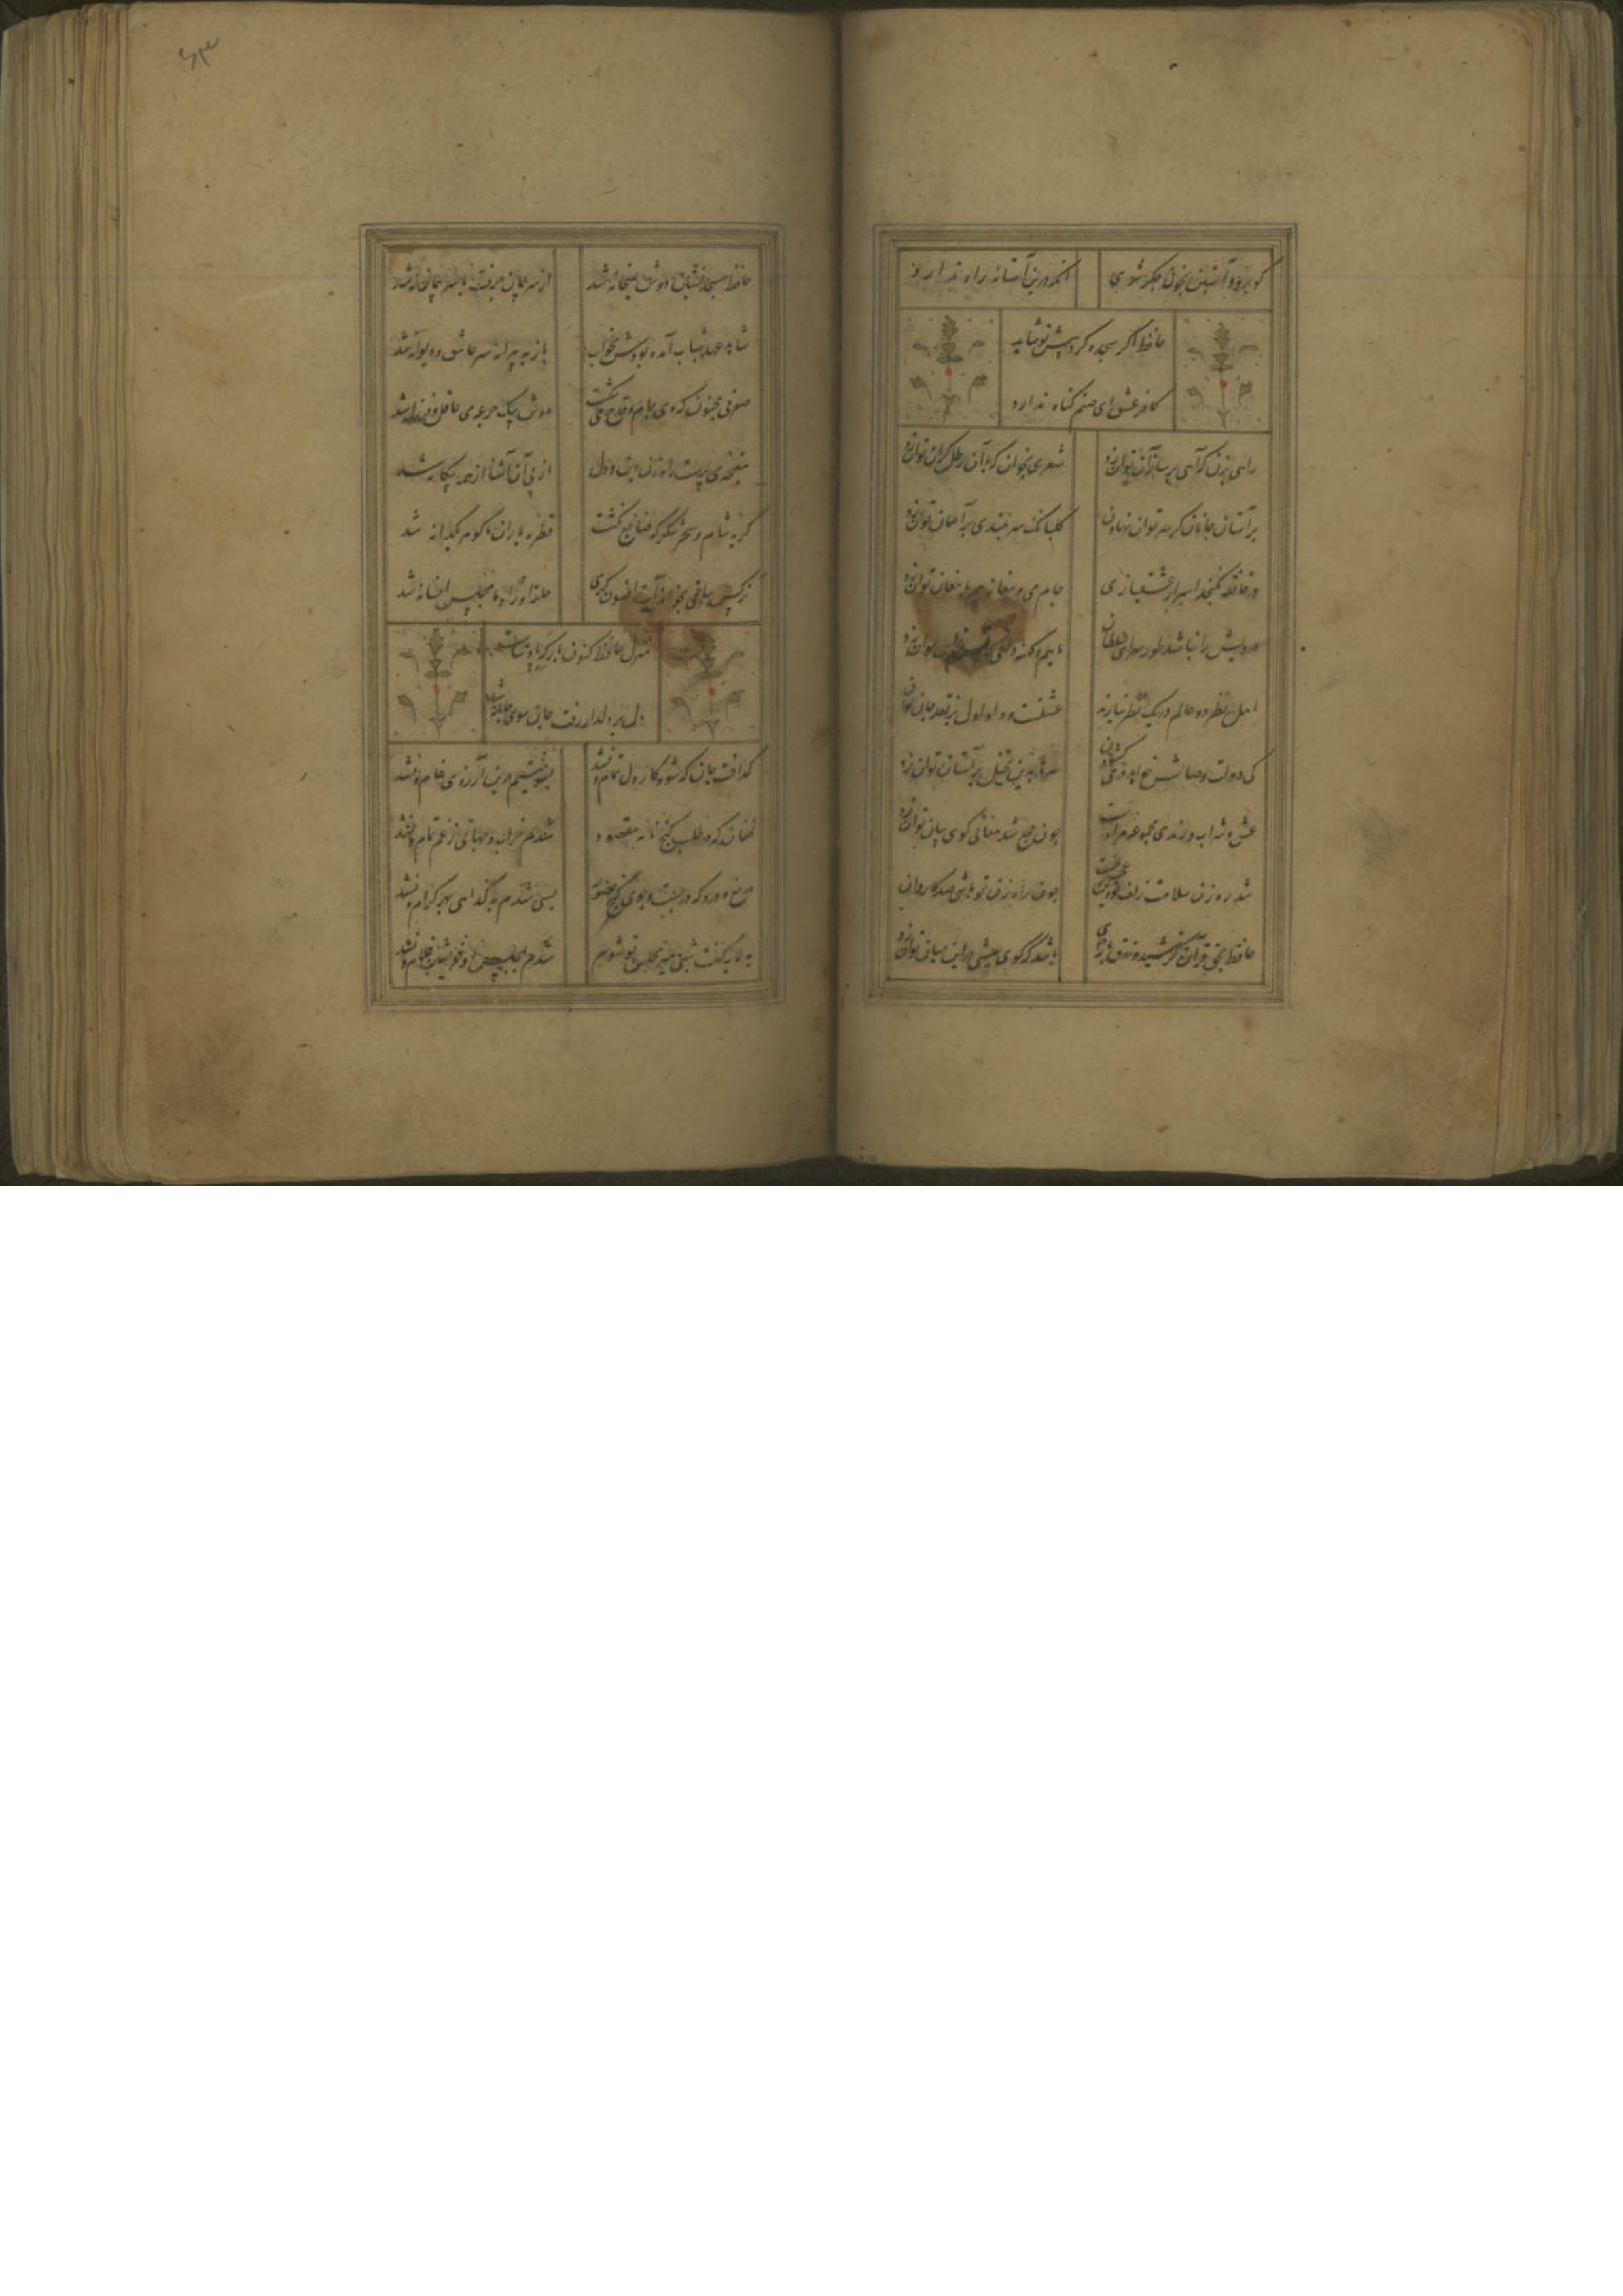 گو برو و آستین بخون جگر شوی
آنکه درین آستانه راه ندارد
حافظ اگر سجده کرد پیش تو شاید
کافر عشق ای صنم گناه ندارد
راهی بزن که آهی بر ساز آن توان زد
شعری بخوان که با آن رطل گران توان زد
بر آستان جانان گر سر توان نهادن
گلبانگ سربلندی بر آسمان توان زد
در خانقه نگنجد اسرار عشقبازی
جام می و مغانه هم با مغان توان زد
درویش را نباشد سرای سلطان
ماییم و کهنه دلقی توان زد
اهل نظر دو عالم در یک نظر ببازند
عشقست و داو اول بر نقد جان توان
گر دولت وصالش خواهد دری گشودن
سرها بدین تخیل بر آستان توان زد
عشق و شراب و رندی مجموعه مرادست
چون جمع شد معانی گوی بیان توان زد
شد رهزن سلامت زلف تو وین عجب نیست
چون راه زن تو باشی صد کاروان
حافظ بحق قرآن کز شید و زرق بازآی
باشد که گوی عیشی در این میان توان زد
۶۳
حافظ مسجدنشین دوش بمیخانه شد
از سر پیمان برفت با سر پیمانه شد
شاهد عهد شباب آمده بودش بخواب
باز به پیرانه سر عاشق و دیوانه شد
صوفی مجنون که دی جام و قدح می‌شکست
دوش بیک جرعه می عاقل و فرزانه شد
مغبچه می‌ راه‌زن دین و دل
از پی آن آشنا از همه بیگانه شد
گریه شام و سحر شکر که ضایع نگشت
قطره باران ما گوهر یکدانه شد
نرگس ساقی بخواند آیت افسون‌گری
حلقه اوراد ما مجلس افسانه شد
منزل حافظ کنون بارگه پادشاست
دل بر دلدار رفت جان سوی جانانه شد
گداخت جان که شود کار دل تمام و نشد
بسوختیم درین آرزوی خام و نشد
فغان که در طلب گنج نامه مقصود
شدم خراب جهانی ز غم تمام و نشد
دریغ و درد که در جست و جوی گنج حضور
بسی شدم به گدایی بر کرام و نشد
به لابه گفت شبی میر مجلس تو شوم
شدم غلام و نشد